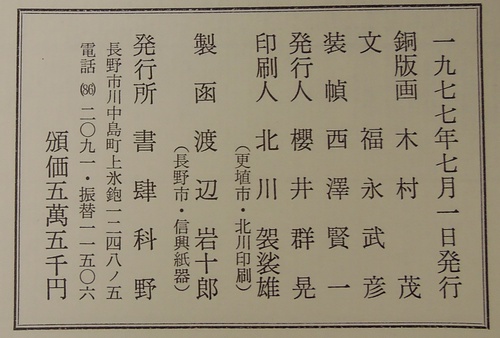 一九七七年七月一日発行
銅版画 木村茂
文 福永武彦
装幀 西澤賢一
発行人 櫻井群晃
印刷人 北川袈裟雄
(更埴市・北川印刷)
製函 渡辺岩十郎
(長野市・信興紙器)
発行所 書肆科野
長野市川中島町上氷鉋一二四八ノ五
電話 ㈶ 二〇九一・振替一一五〇六
頒価五萬五千円